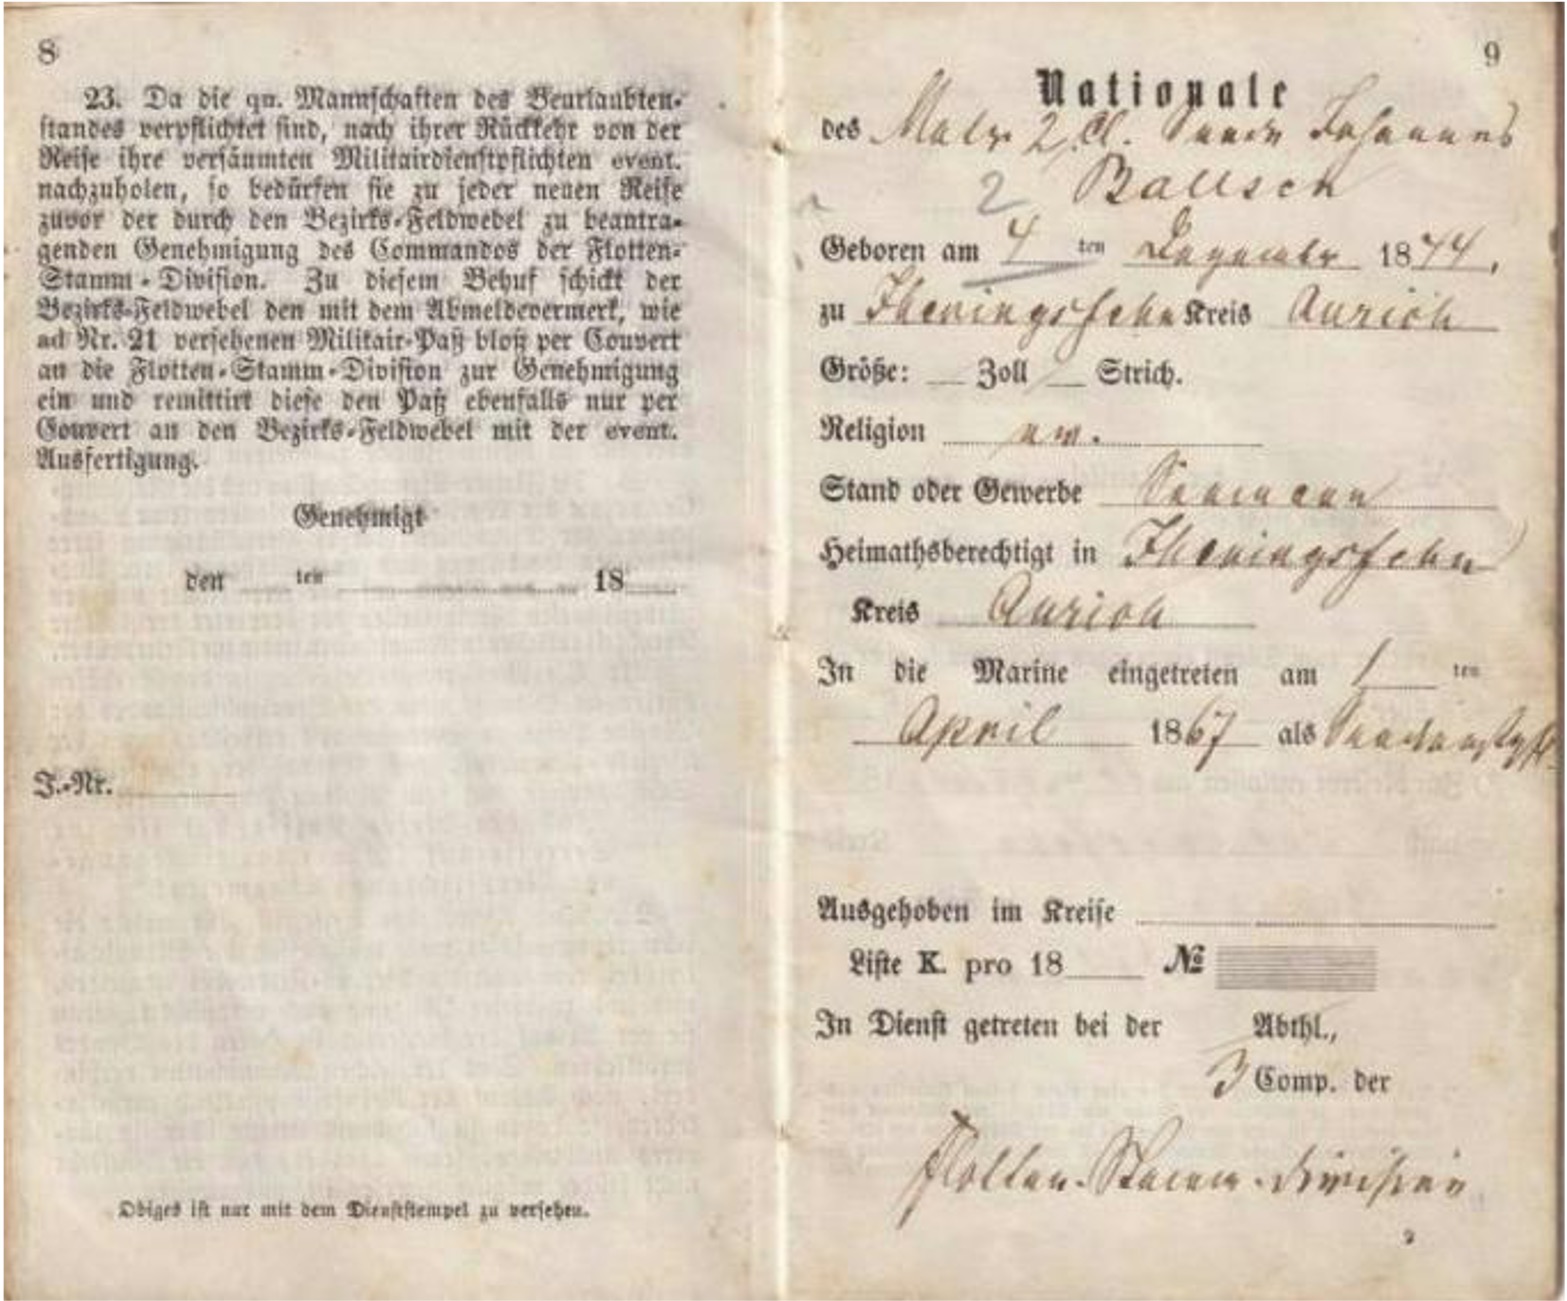 8
23. Da die qu. Mannschaften des Beurlaubten-
standes verpflichtet sind, nach ihrer Rückkehr von der
Reise ihre versäumten Militairdienstpflichten event.
nachzuholen, so bedürfen sie zu jeder neuen Reise
zuvor der durch den Bezirks-Feldwebel zu beantra-
genden Genehmigung des Commandos der Flotten-
Stamm-Division. Zu diesem Behuf schickt der
Bezirks-Feldwebel den mit dem Abmeldevermerk, wie
ad Nr. 21 versehenen Militair-Paß bloß per Couvert
an die Flotten-Stamm-Division zur Genehmigung
ein und remittirt diese den Paß ebenfalls nur per
Couvert an den Bezirks-Feldwebel mit der event.
Ausfertigung.
Genehmigt
den ten 18
J.-Nr.
Obiges ist nur mit dem Dienststempel zu versehen.
9
Nationale
des Matr. 2. Cl. Johannes
2
Geboren am 4 ten Dezember 1844.
zu Iheringsfehn Kreis Aurich
Größe: Zoll Strich.
Religion ev.
Stand oder Gewerbe Seemann
Heimathsberechtigt in Iheringsfehn
Kreis Aurich
In die Marine eingetreten am 1 ten
April 1867 als
Ausgehoben im Kreise
Liste K. pro 18 №
In Dienst getreten bei der Abthl.,
3 Comp. der
Flotten-Stamm-Division